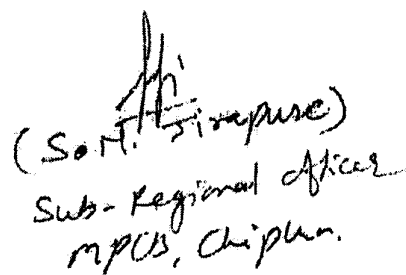 (S.N. Jirapure)
Sub-Regional Officer
MPCB, Chiplun.